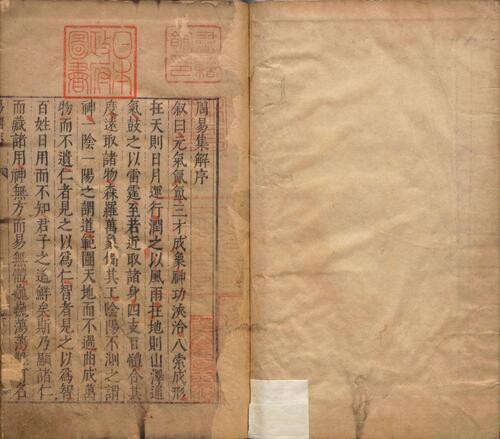 日本
政府
圖書
書籍
館印
周易集解序
叙曰元氣氤氳三才成象神功浹洽八索成形
在天則日月運行潤之以風雨在地則山澤通
氣鼓之以雷霆至若近取諸身四支百體合其
度遠取諸物森羅萬象備其工陰陽不測之謂
神一陰一陽之謂道範圍天地而不過曲成萬
物而不遺仁者見之以為仁智者見之以為智
百姓日用而不知君子之道鮮矣斯乃顯諸仁
而藏諸用神無方而易無體巍巍蕩蕩難可名